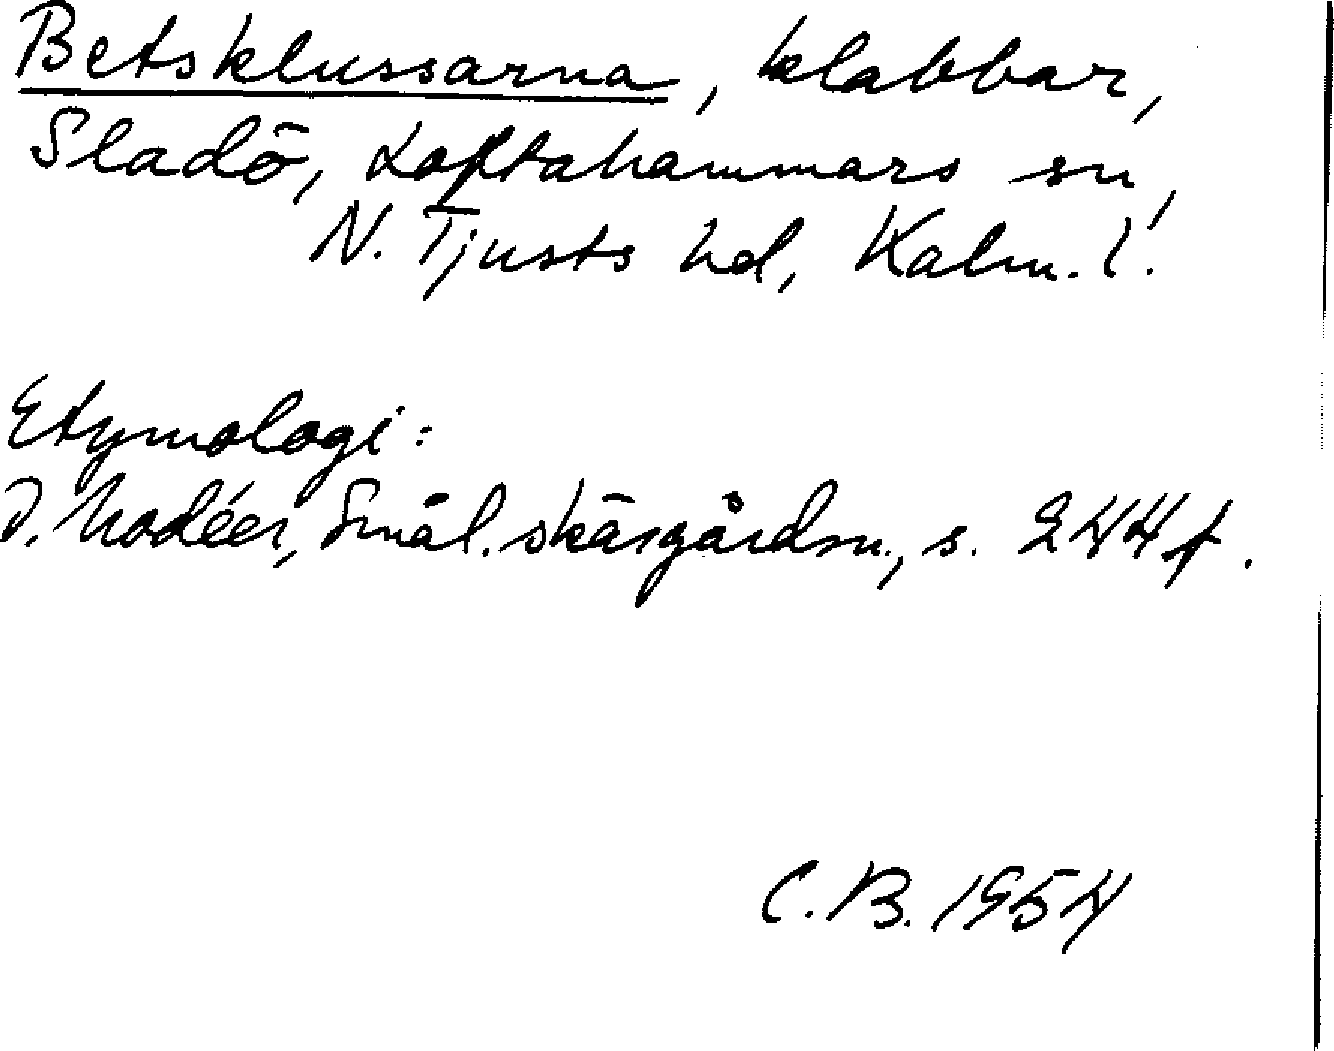 Betsklussarna, klabbar,
Sladö, Loftahammars sn,
N. Tjusts hd, Kalm. l.
Etymologi:
I. Modéer, Smål. skärgårdsn., s. 244 f.
C. B. 1954